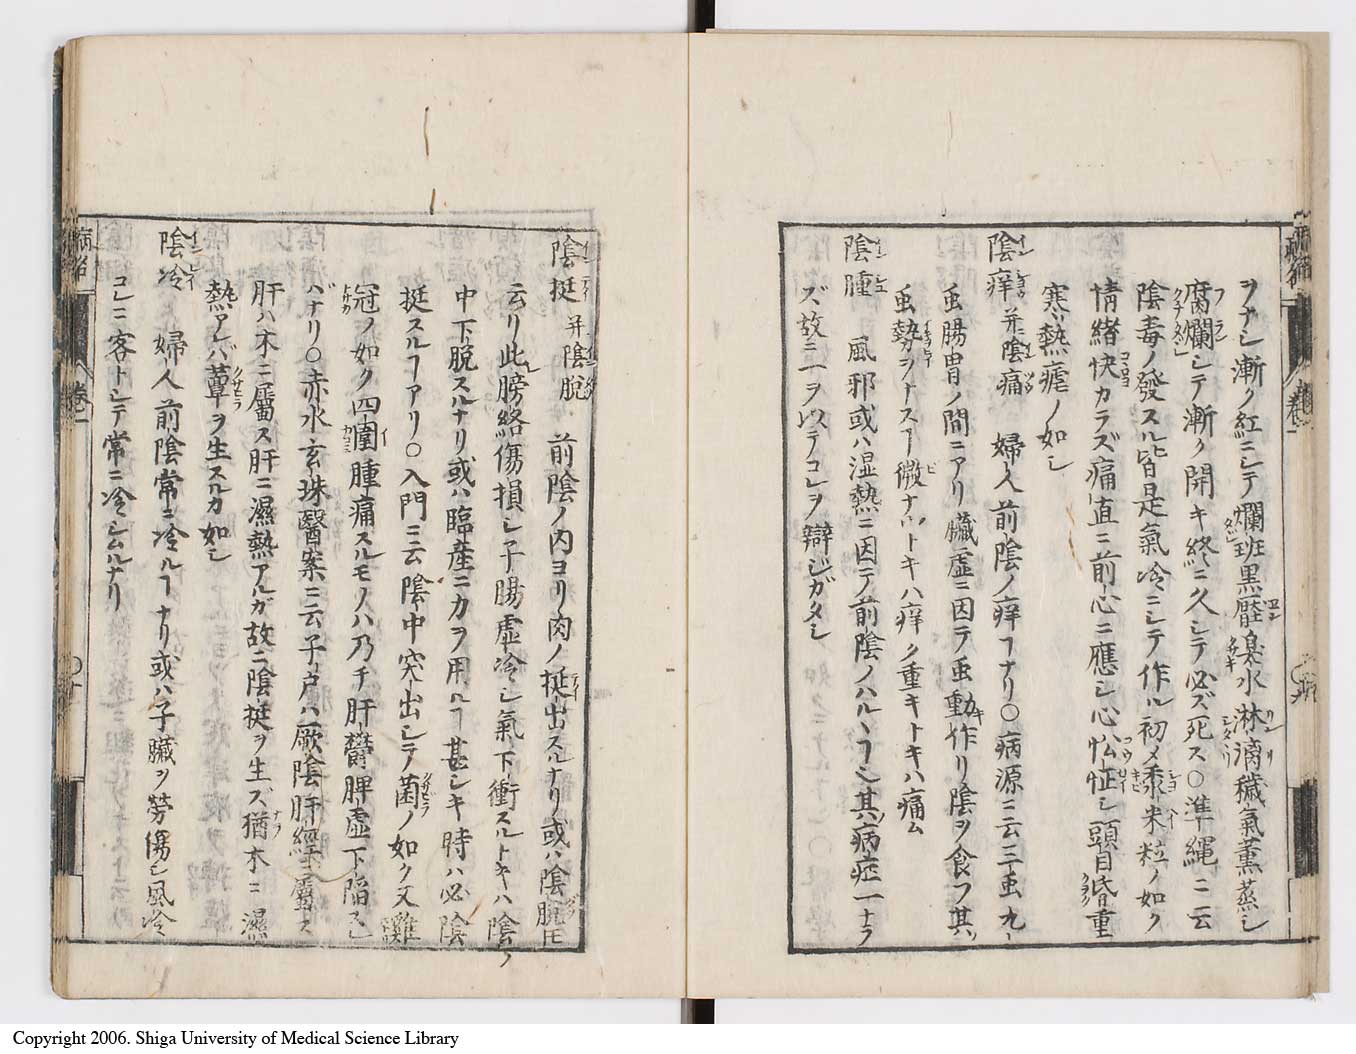 ヲナシ漸ク紅ニシテ爛班黒臭水淋漓穢氣薫蒸シ
腐爛シテ漸ク開キ終ニ久シテ必ズ死ス〇準繩ニ云
陰毒ノ發スル皆是氣冷ニシテ作ル初メ黍米粒ノ如ク
情緒快カラズ痛直ニ前心ニ應シ心忪怔シ頭目昏重
寒熱瘧ノ如シ
陰痒并陰痛 婦人前陰ノ痒ヿナリ〇病源ニ云三虫九
虫腸胃ノ間ニアリ臓虚ニ因テ虫動作リ陰ヲ食フ其
虫勢ヲナスヿ微ナルトキハ痒ク重キトキハ痛ム
陰腫 風邪或ハ湿熱ニ因テ前陰ノハルヽヿ也其病症一ナラ
ズ故ニ一ヲ以テコレヲ辯ジガタシ
陰挺并陰脱 前陰ノ内ヨリ肉ノ挺出スルナリ或ハ陰脱モ
云リ此膀絡傷損シ子腸虚冷シ氣下衝スルトキハ陰
中下脱スルナリ或ハ臨産ニカヲ用ルヿ甚シキ時ハ必陰
挺スルヿアリ〇入門ニ云陰中突出シテ菌ノ如ク又雞
冠ノ如ク四圍腫痛スルモノハ乃チ肝欝脾虚下陥
ナリ〇赤水玄珠醫案ニ云子戸ハ厥陰肝經ニ屬ス
肝ハ木ニ屬ス肝ニ濕熱アルガ故ニ陰挺ヲ生ズ猶木ニ濕
熱アレバ蕈ヲ生スルカ如シ
陰冷 婦人前陰常ニ冷ルヿナリ或ハ子臓ヲ労傷シ風冷
コレニ客トシテ常ニ冷シムルナリ
卷一
Copyright 2006. Shiga University of Medical Science Library